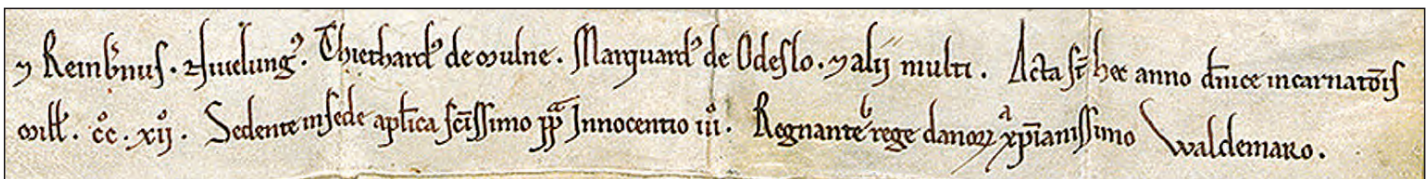 ⁊ Reinb̄nus . ⁊ Iuelungꝰ . Thiethardꝰ de mulne . Marquardꝰ de Odeslo . ⁊ alij multi . Acta st̄ hec anno dn̄ice incarnatōis
mill̄ . cͦc . xijͦ . Sedente in sede apl̄ica sc̄issimo pp̄ª Innocentio iijͦ . Regnante b rege danoꝝ a xp̄ianissimo Waldemaro .